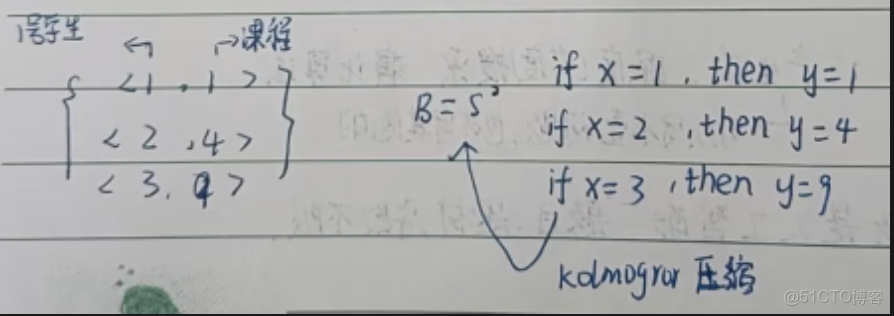 1号学生
→课程
{ <1 , 1> }
< 2 , 4 >
< 3 , 9 >
B = S²
if x=1 , then y=1
if x=2 , then y=4
if x=3 , then y=9
kolmogror 压缩
@51CTO博客